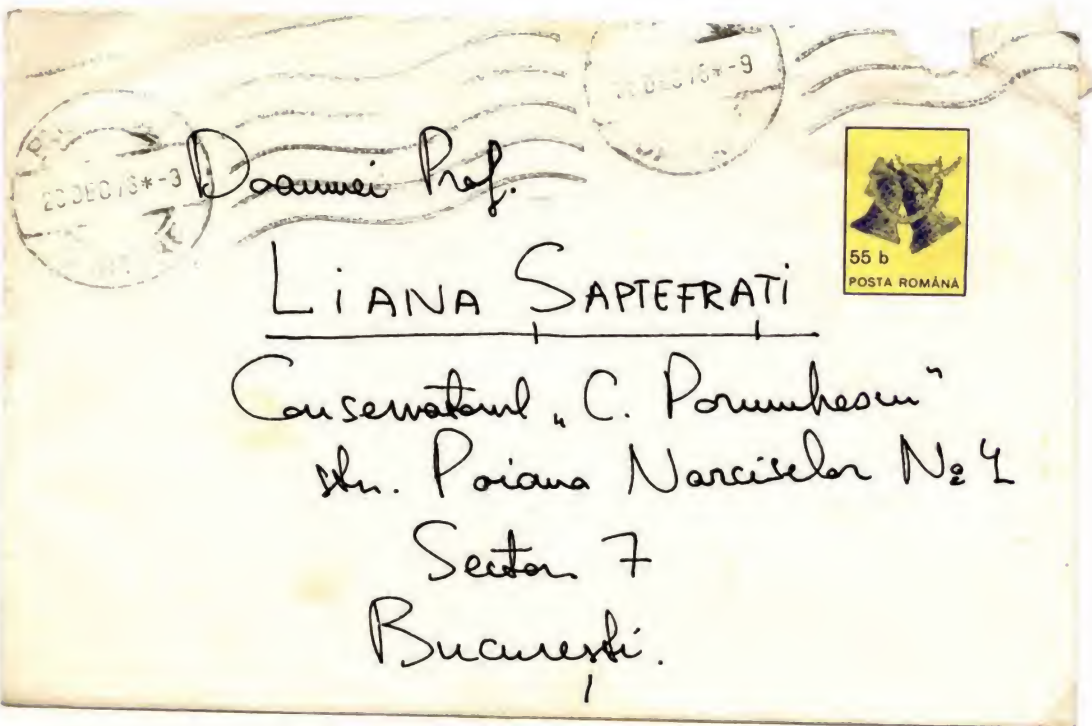 20 DEC 76*-3
DEC 76*-9
Doamnei Prof.
LIANA ȘAPTEFRAȚI
55 b
POSTA ROMÂNĂ
Conservatorul „C. Porumbescu"
str. Poiana Narciselor No
Sector 7
București.